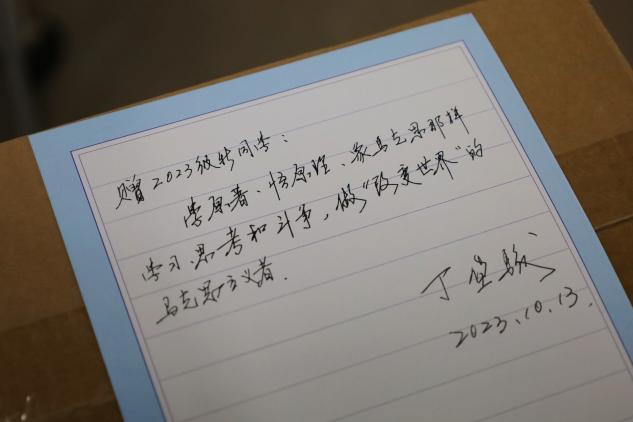 赠2023级新同学：
学原著、悟原理、像马克思那样
学习、思考和斗争，做“改变世界”的
马克思主义者.
丁堡骏
2023.10.13.